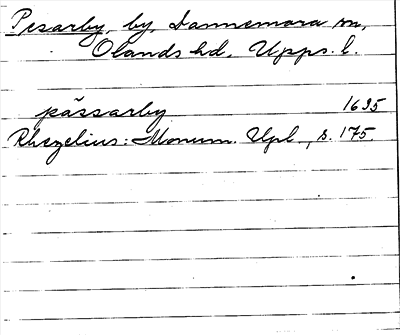 Pesarby, by, Dannemora sn,
Olands hd, Upps. l.
påssarby 1635
Rhezelius: Monum. Upl., s. 175.